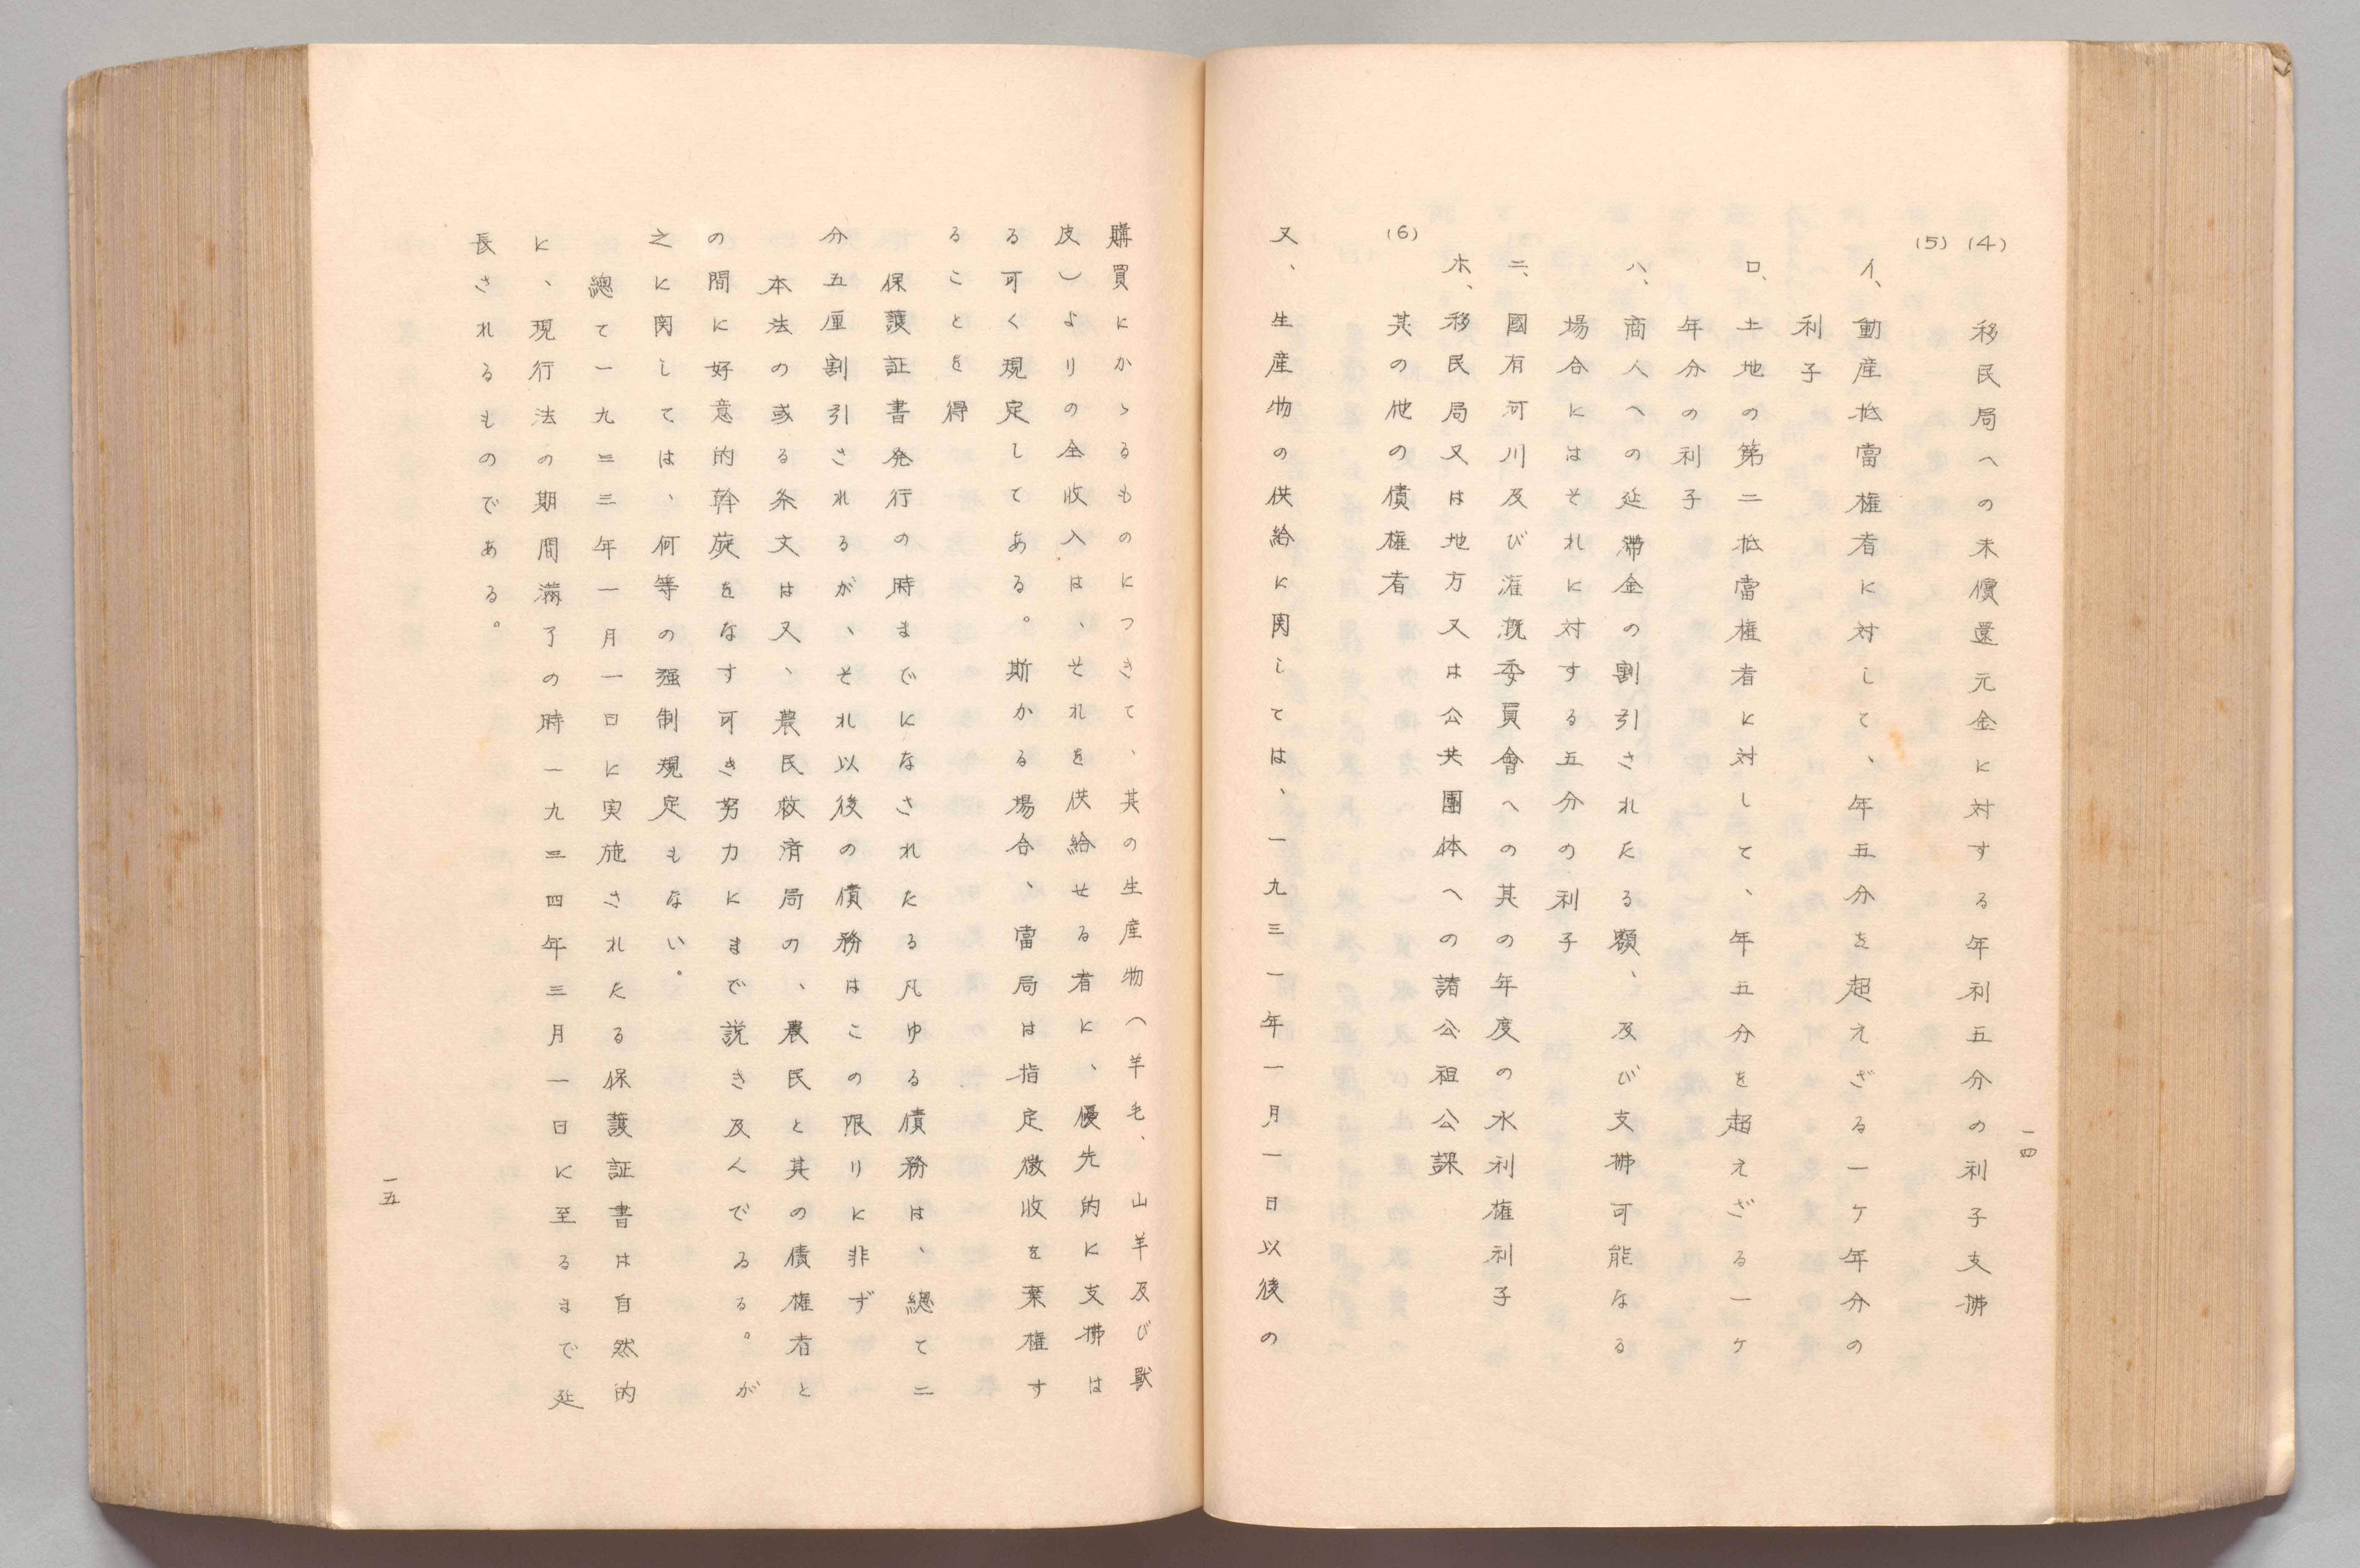 一四
(4) 移民局への未償還元金に対する年利五分の利子支拂
(5)
イ、動産抵當権者に対して、年五分を超えざる一ケ年分の
利子
ロ、土地の第二抵當権者に対して、年五分を超えざる一ケ
年分の利子
ハ、商人への延滞金の割引されたる額、及び支拂可能なる
場合にはそれに対する五分の利子
ニ、國有河川及び漑委員會への其の年度の水利権利子
ホ、移民局又は地方又は公共團体への諸公租公課
(6) 其の他の債権者
又、生産物の供給に関しては、一九三一年一月一日以後の
購買にかゝるものにつきて、其の生産物(羊毛、山羊及び獣
皮)よりの全收入は、それを供給せる者に、優先的に支拂は
る可く規定してある。斯かる場合、當局は指定徴收を棄権す
ることを得
保護証書発行の時までになされたる凡ゆる債務は、總て二
分五厘割引されるが、それ以後の債務はこの限りに非ず
本法の或る条文は又、農民救済局の、農民と其の債権者と
の間に好意的幹旋をなす可き努力にまで説き及んでゐる。が
之に関しては、何等の强制規定もない。
總て一九三三年一月一日に実施されたる保護証書は自然的
に、現行法の期間満了の時一九三四年三月一日に至るまで延
長されるものである。
一五